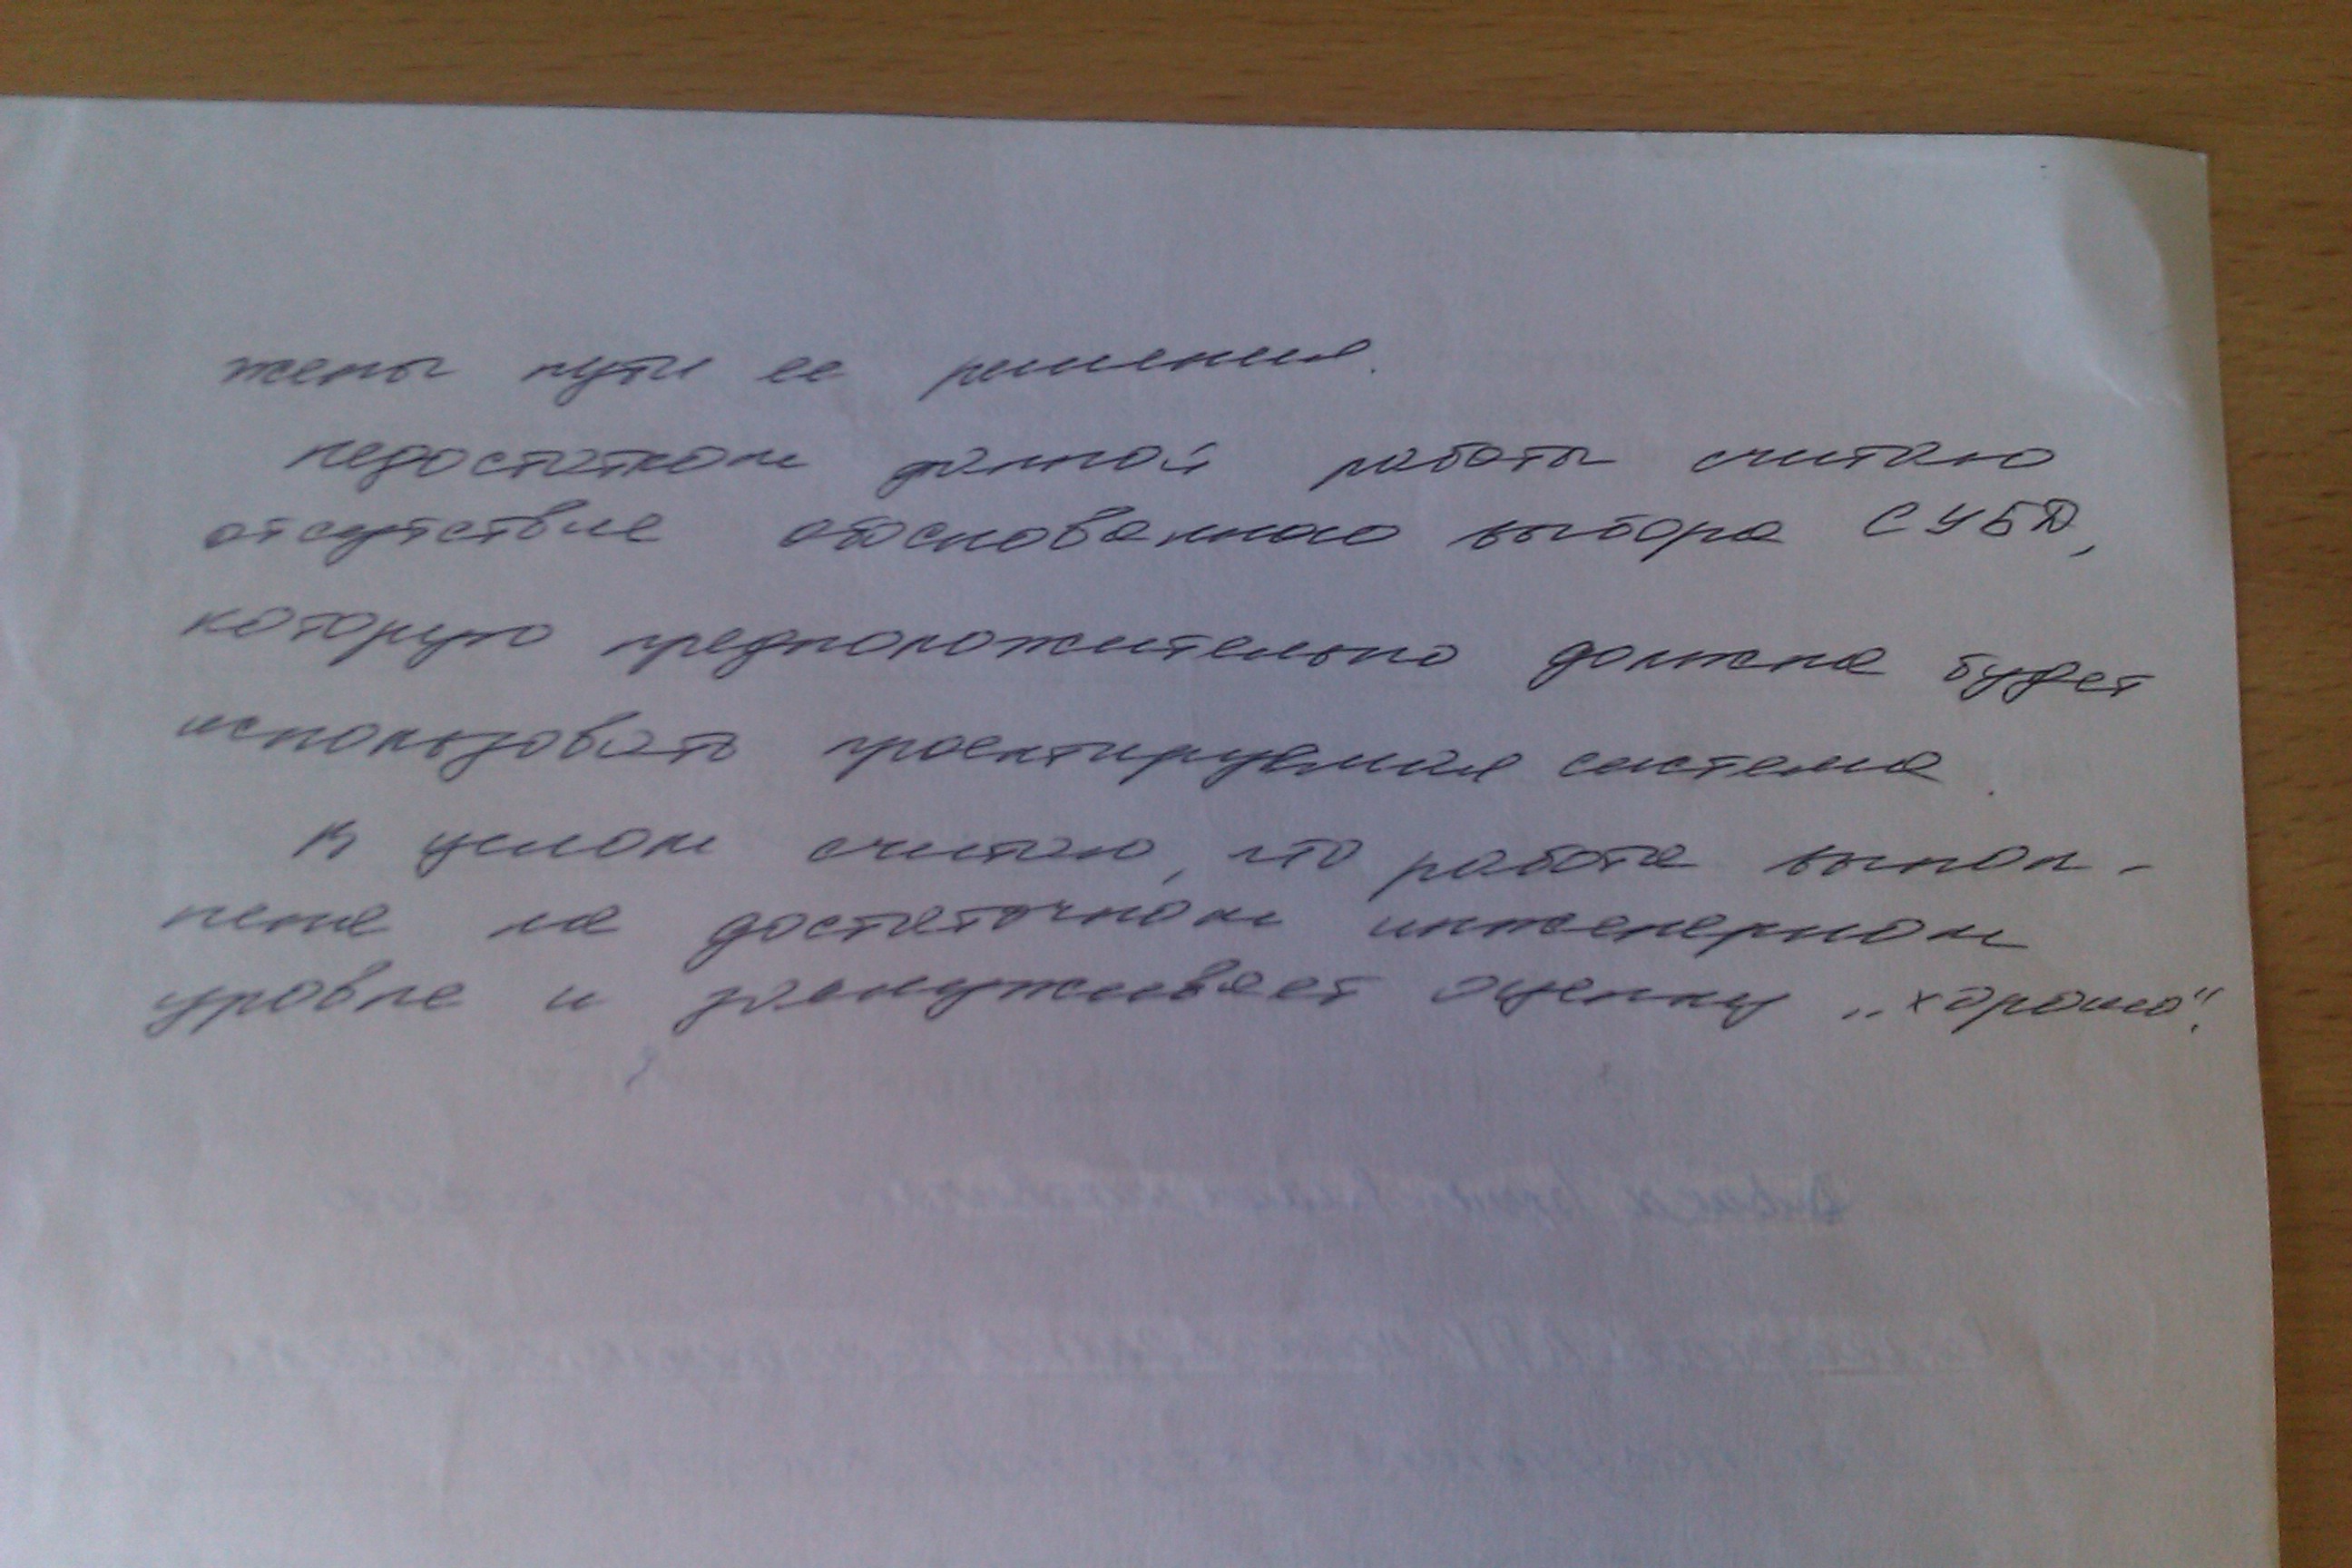 жены пути ее решения.
Недостатком данной работы считаю
отсутствие обоснованного выбора СУБД,
которую предположительно должна будет
использовать проектируемая система.
В целом считаю, что работа выпол-
нена на достаточном инженерном
уровне и заслуживает оценку „хорошо".